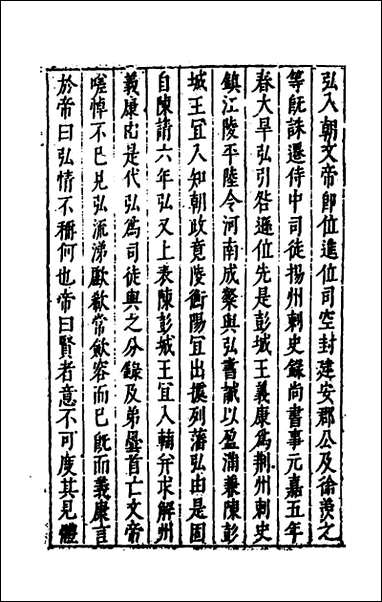 弘入朝文帝卽位進位司空封建安郡公及徐羨之
等旣誅遷侍中司徒揚州刺史錄尚書事元嘉五年
春大旱弘引咎遜位先是彭城王義康爲荆州刺史
鎮江陵平陸令河南成粲與弘書誡以盈滿兼陳彭
城王宜入知朝政竟陵衡陽宜出據列藩弘由是固
自陳請六年弘又上表陳彭城王宜入輔并求解州
義康由是代弘爲司徒與之分錄及弟曇首亡文帝
嗟悼不已見弘流涕歔欷常斂容而已旣而義康言
於帝曰弘情不稱何也帝曰賢者意不可度其見體